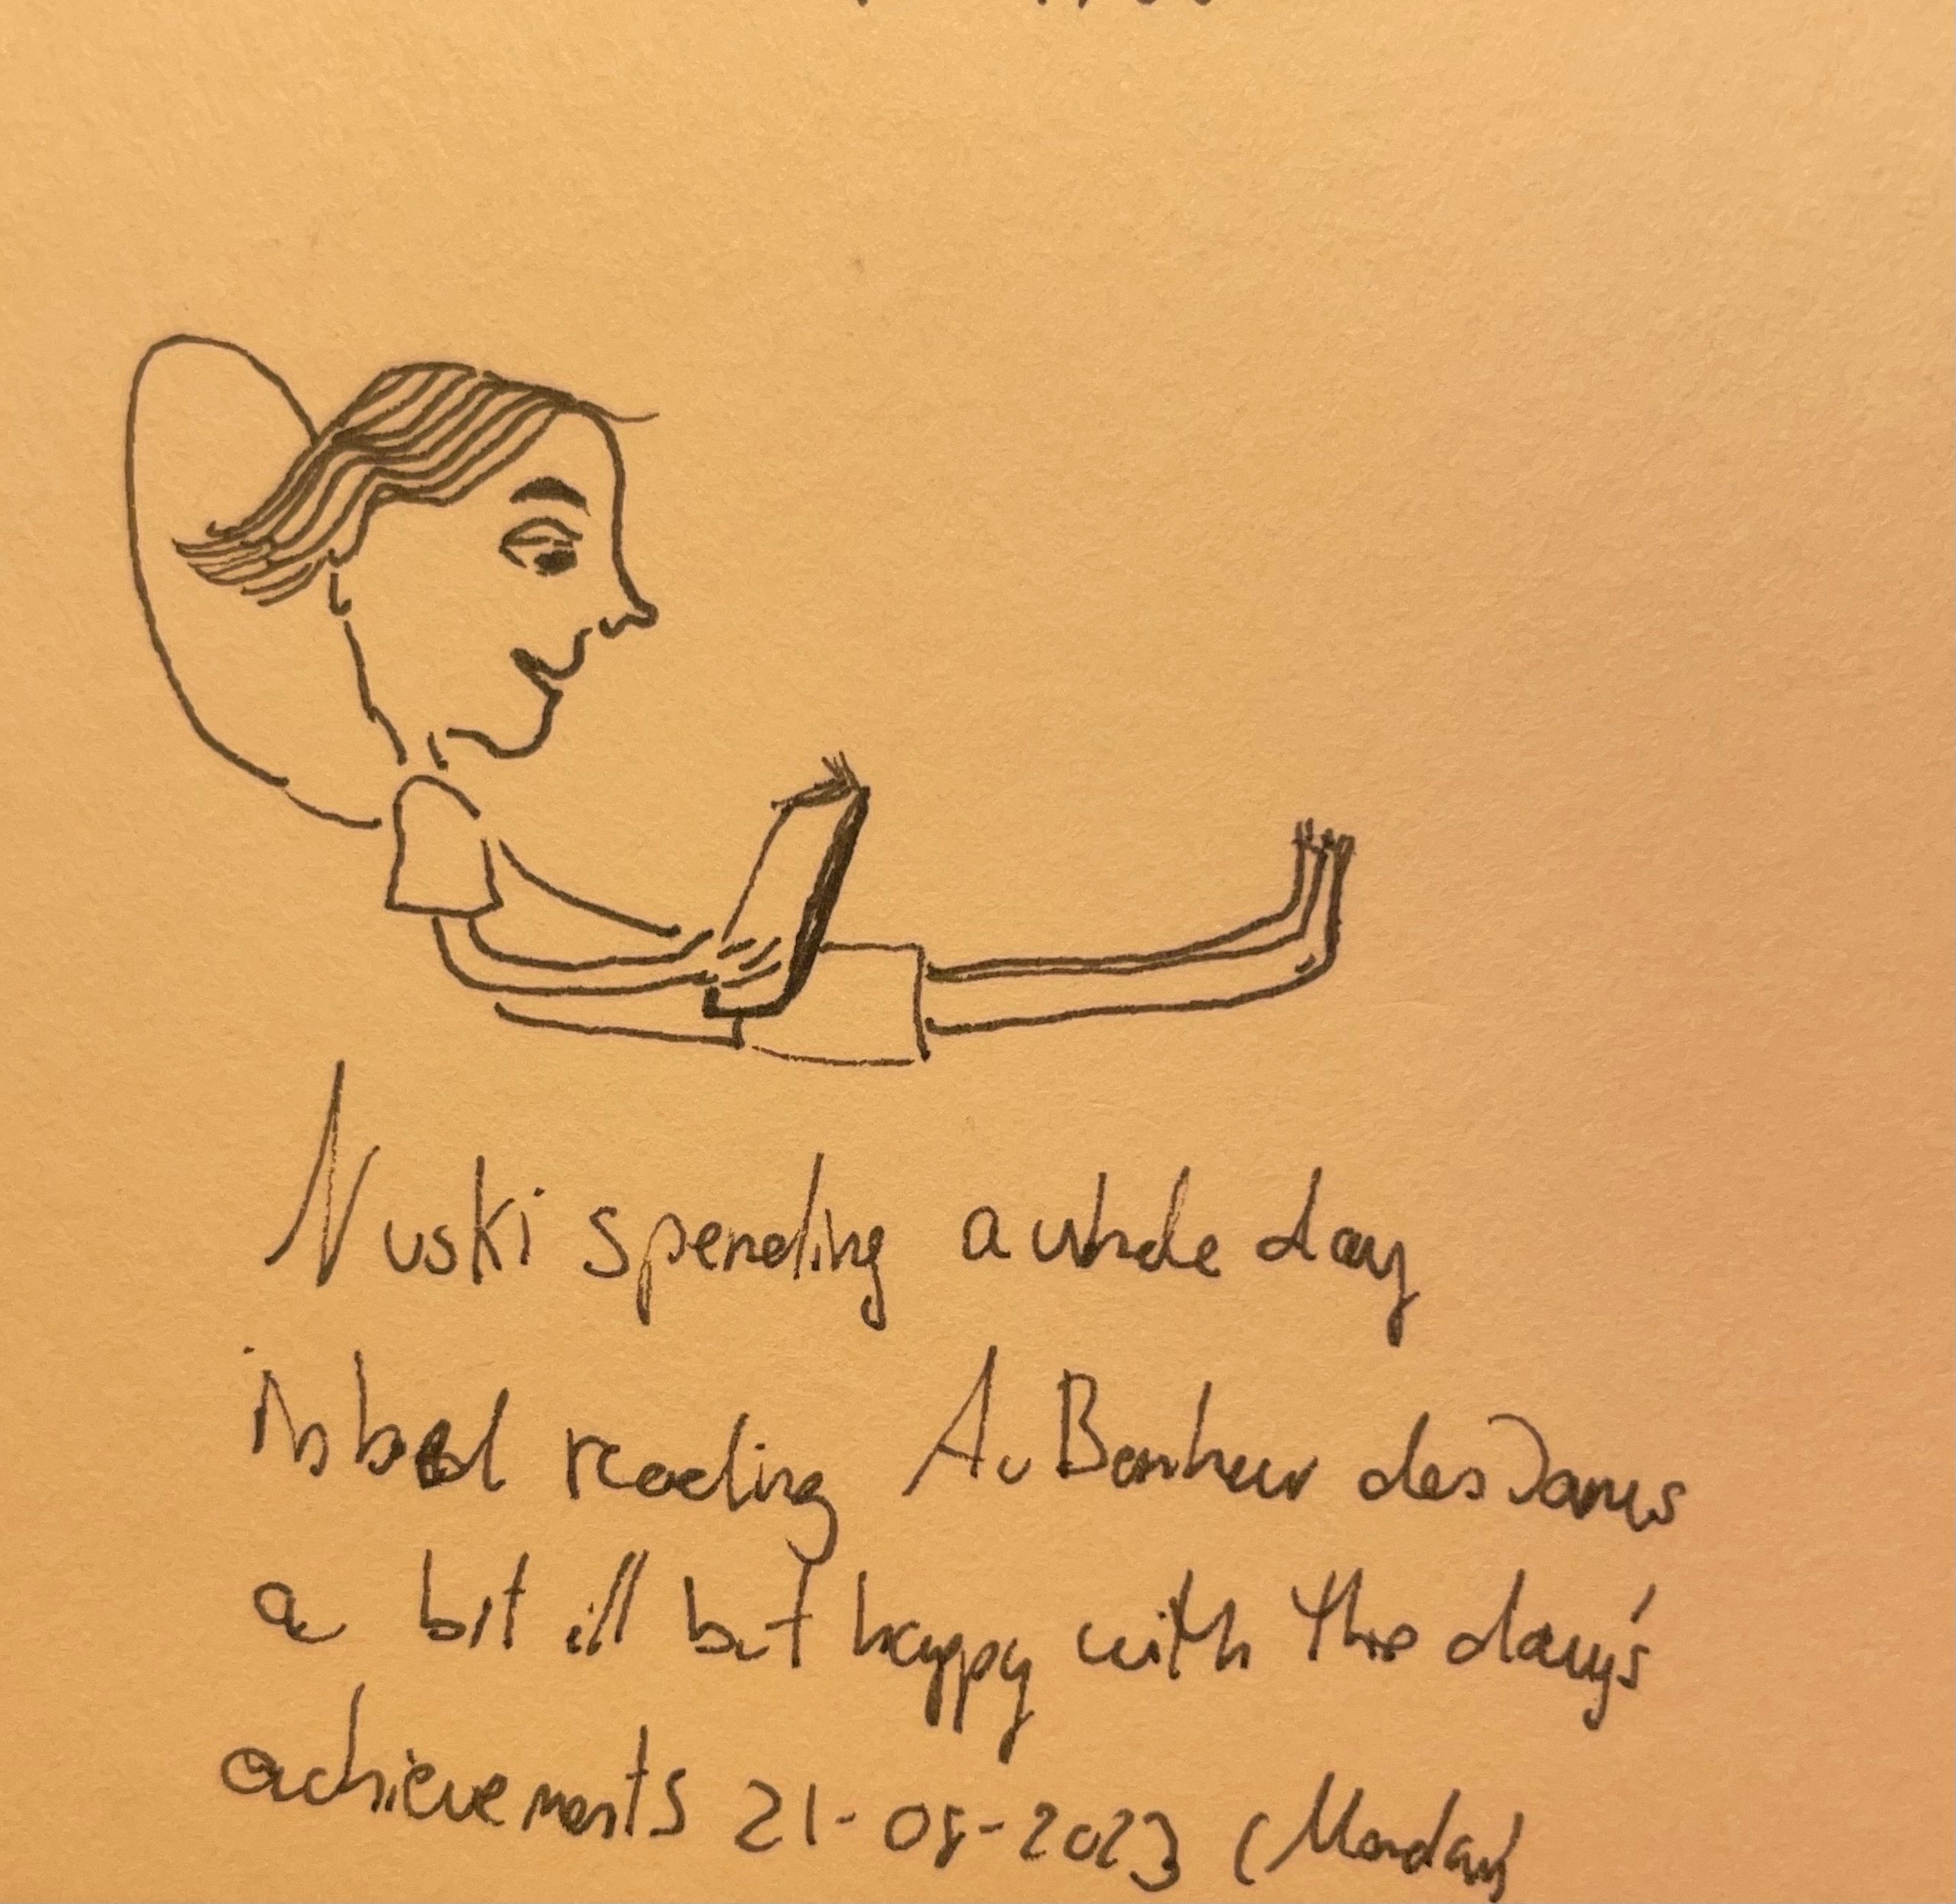 Nuski spending a whole day
in bed reading Au Bonheur des Dames
a bit ill but happy with the day's
achievements 21-08-2023 (Monday)